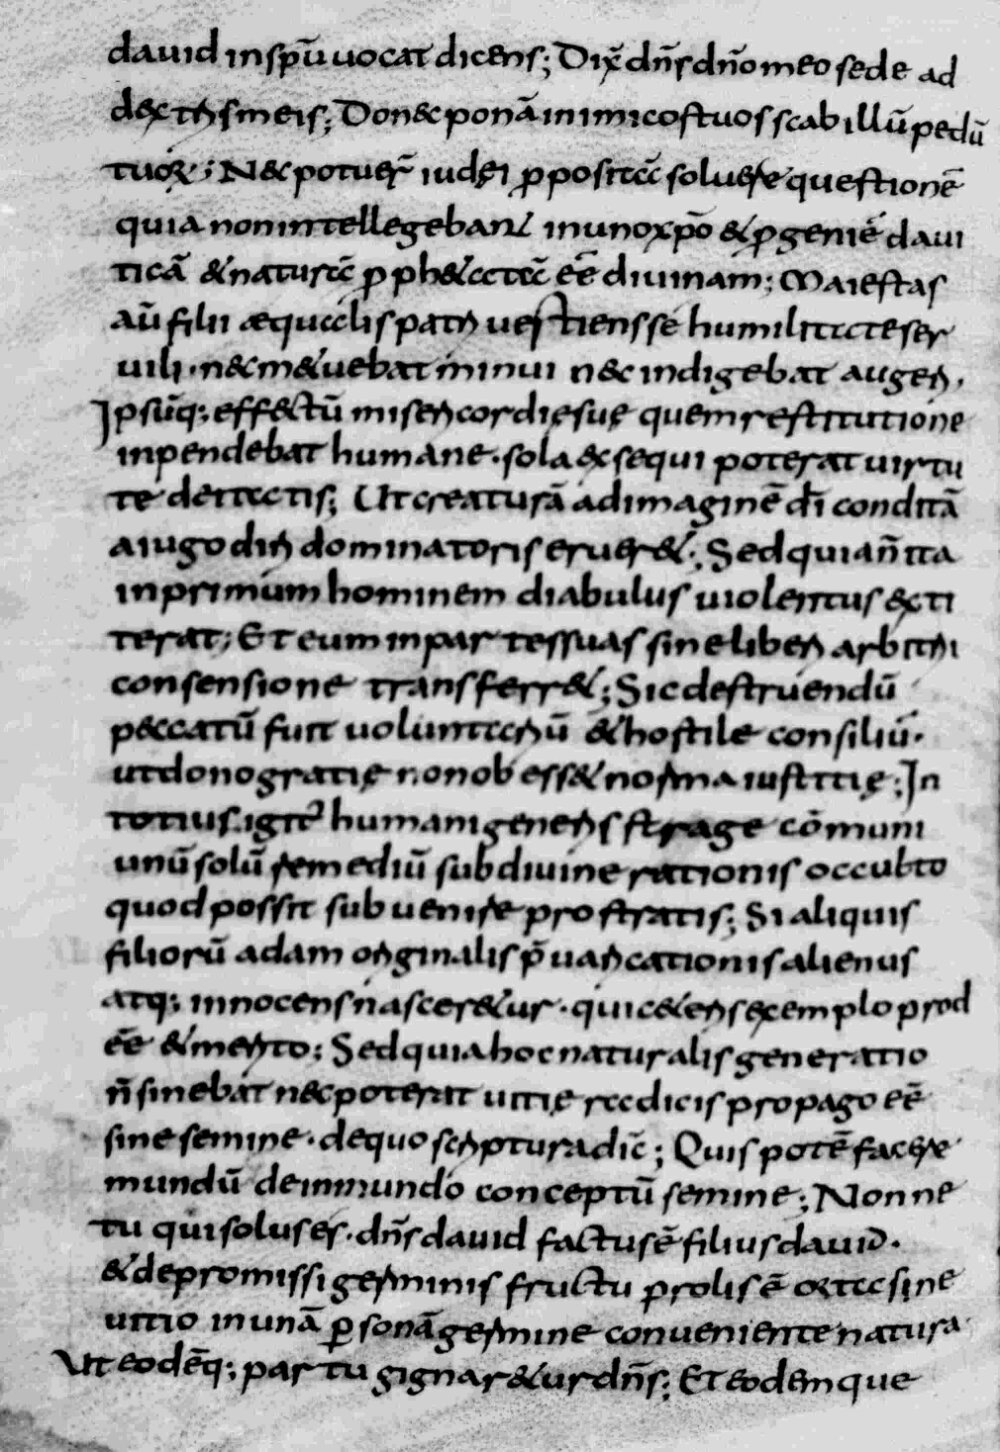 dauid inspū uocat dicens; Dix̄ dn̄s dn̄o meo sede ad
dextris meis; Donec ponā inimicos tuos scabillū pedū
tuoꝝ; Nec potuer̄ iudei ꝓpositā soluere questionē
quia non intellegebant in uno xp̄o & ꝓgeniē daui
ticā & naturā ꝓphetatā eē diuinam; Maiestas
aū filii æqualis patri uestiens se humilitate ser
uili · nec metuebat minui nec indigebat augeri ·
Ipsūq; effectū misericordię suę quem restitutione
inpendebat humane · sola exsequi poterat uirtu
te deitatis; Ut creaturā ad imaginē dī conditā
a iugo diri dominatoris erueret; Sed quia n̄ ita
in primum hominem diabulus uiolentus exti
terat; Et eum in partes suas sine liberi arbitrii
consensione transferret; Sic destruendū
peccatū fuit uoluntariū & hostile consiliū ·
ut dono gratię non obesset norma iustitię; In
totius igit̄ humani generis strage cōmuni
unū solū remediū sub diuine rationis occulto
quod possit subuenire prostratis; Si aliquis
filiorū adam originalis p̄uaricationis alienus
atq; innocens nasceretur · qui ceteris exemplo prod
eē & merito; Sed quia hoc naturalis generatio
n̄ sinebat nec poterat uitię radicis propago eē
sine semine · de quo scriptura dic̄; Quis potē facere
mundū de inmundo conceptū semine; Nonne
tu qui solus es · dn̄s dauid factus ē filius dauid ·
& de promissi germinis fructu prolis ē orta sine
uitio in unā ꝑsonā gemine conueniente natura
Ut eodēq; partu gignaretur dn̄s; Et eodem que